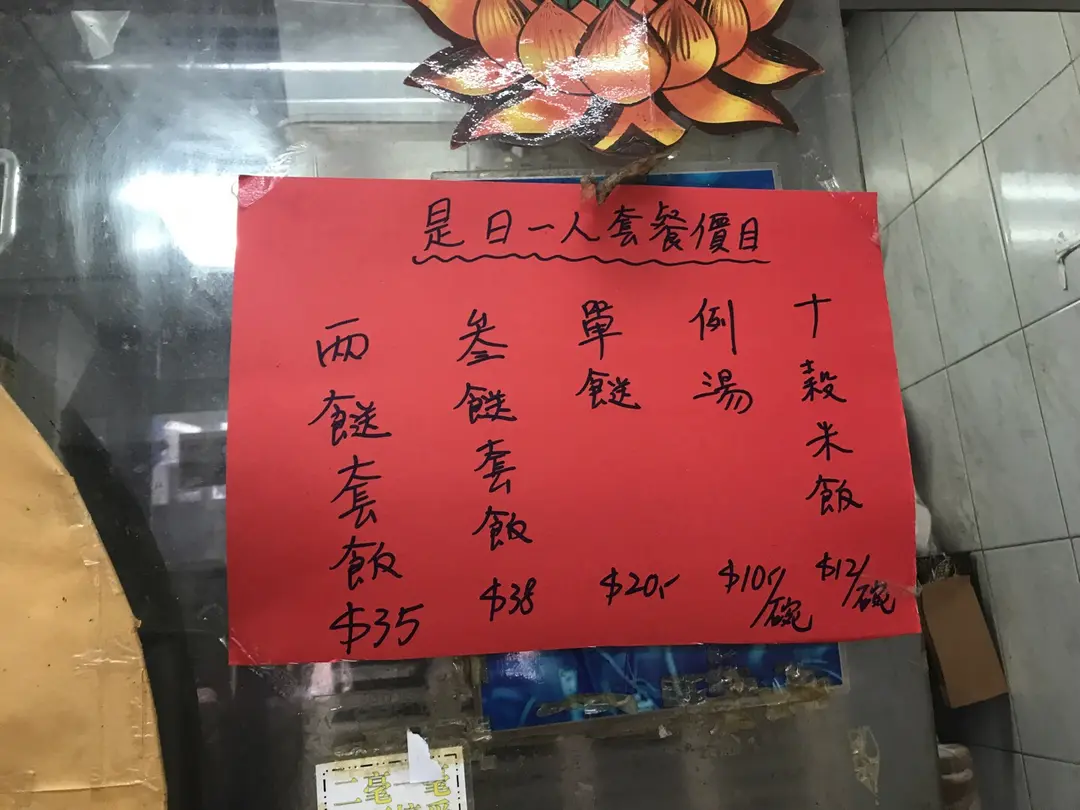 是日一人套餐價目
兩餸套飯 $35
叁餸套飯 $38
單餸 $20.-
例湯 $10.-/碗
十穀米飯 $12/碗
二毫一毫